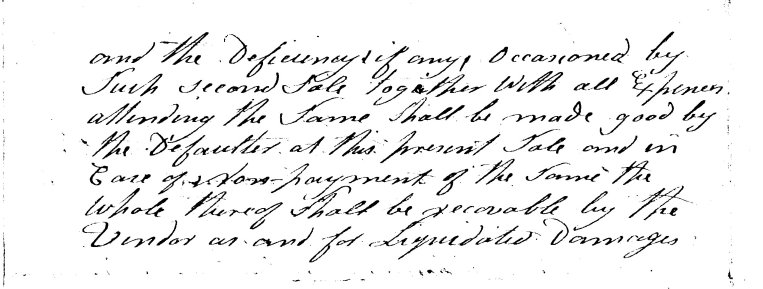 and the Deficiency, if any, Occasioned by
Such second Sale together With all Expences
attending the Same Shall be made good by
the Defaulter at this present Sale and in
Case of Non-payment of the Same the
Whole thereof Shall be recovable by the
Vendor as and for Liquidated Damages